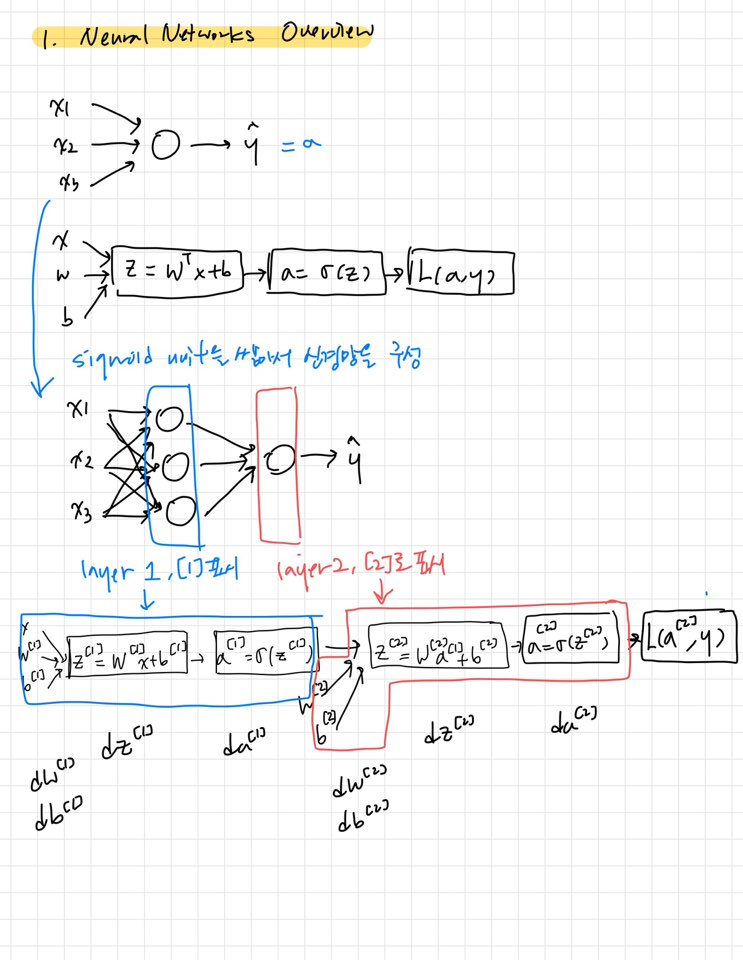 1. Neural Networks Overview
x1
x2
x3
ŷ = a
x
w
b
z = wᵀx+b
a = σ(z)
L(a,y)
sigmoid unit을 쌓아서 신경망을 구성
x1
x2
x3
ŷ
layer 1, [1] 표시
layer 2, [2]로 표시
x
W[1]
b[1]
z[1] = W[1]x+b[1]
a[1] = σ(z[1])
W[2]
b[2]
z[2] = W[2]a[1]+b[2]
a[2] = σ(z[2])
L(a[2], y)
dz[1]
da[1]
dz[2]
da[2]
dW[1]
db[1]
dW[2]
db[2]